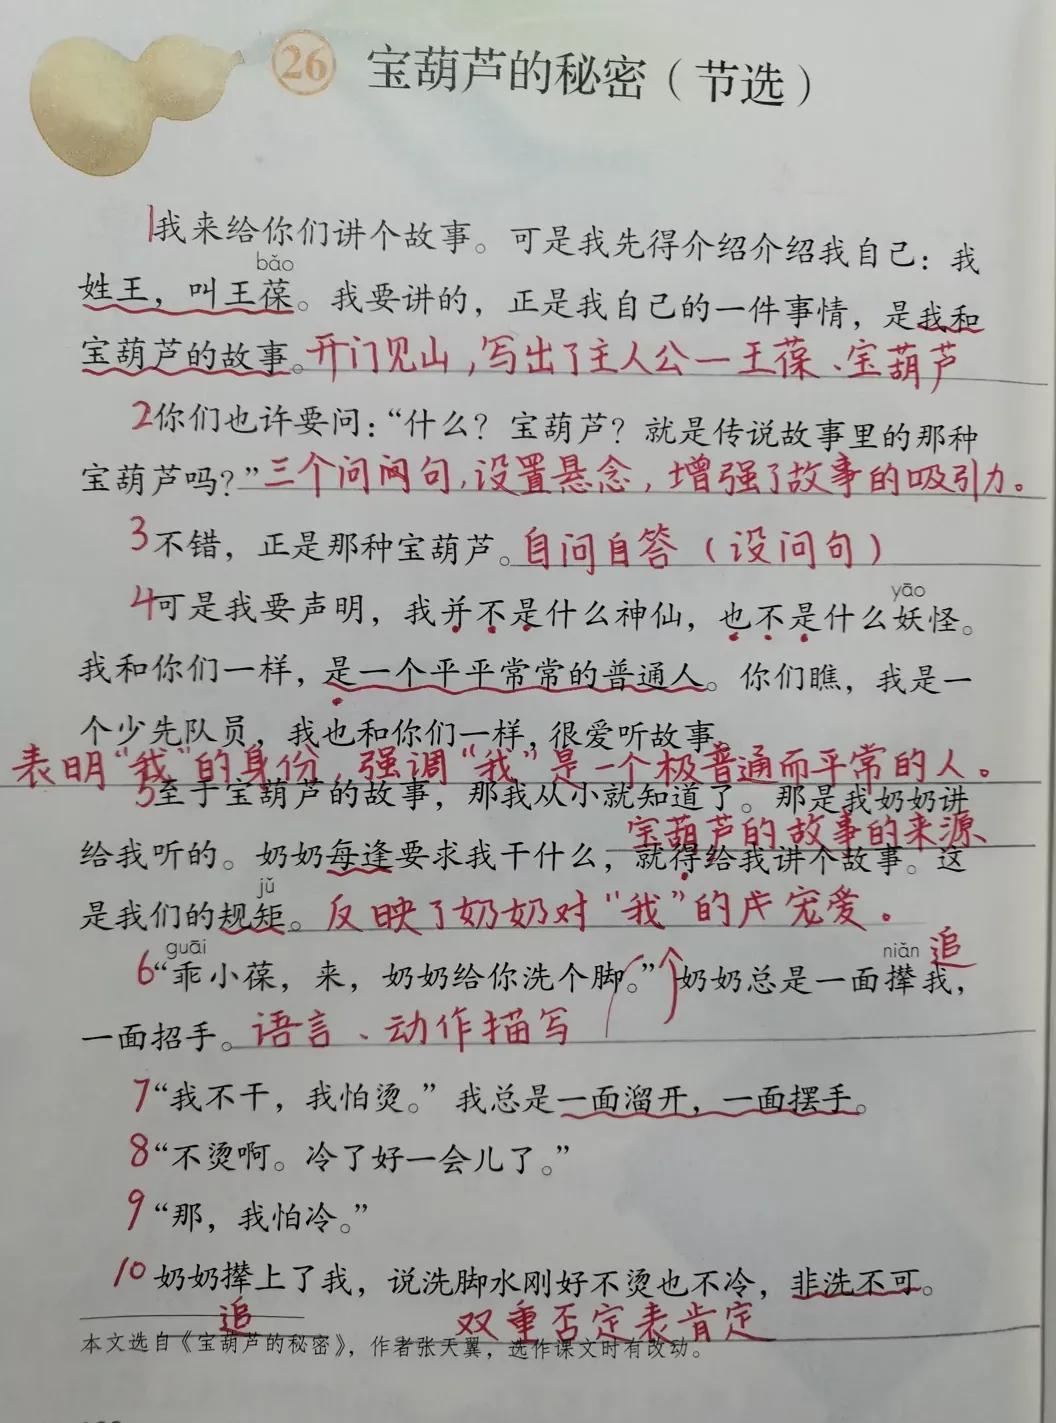 26 宝葫芦的秘密（节选）
1我来给你们讲个故事。可是我先得介绍介绍我自己：我
bǎo
姓王，叫王葆。我要讲的，正是我自己的一件事情，是我和
宝葫芦的故事。开门见山，写出了主人公一王葆、宝葫芦
2你们也许要问：“什么？宝葫芦？就是传说故事里的那种
宝葫芦吗？”三个问问句，设置悬念，增强了故事的吸引力。
3不错，正是那种宝葫芦。自问自答（设问句）
yāo
4可是我要声明，我并不是什么神仙，也不是什么妖怪。
我和你们一样，是一个平平常常的普通人。你们瞧，我是一
个少先队员，我也和你们一样，很爱听故事
表明“我”的身份，强调“我”是一个极普通而平常的人。
5至于宝葫芦的故事，那我从小就知道了。那是我奶奶讲
宝葫芦的故事的来源
给我听的。奶奶每逢要求我干什么，就得给我讲个故事。这
jǔ
是我们的规矩。反映了奶奶对“我”的宠爱。
guāi niǎn 追
6“乖小葆，来，奶奶给你洗个脚。”奶奶总是一面撵我，
一面招手。语言、动作描写
7“我不干，我怕烫。”我总是一面溜开，一面摆手。
8“不烫啊。冷了好一会儿了。”
9“那，我怕冷。”
10奶奶撵上了我，说洗脚水刚好不烫也不冷，非洗不可。
追 双重否定表肯定
本文选自《宝葫芦的秘密》，作者张天翼，选作课文时有改动。